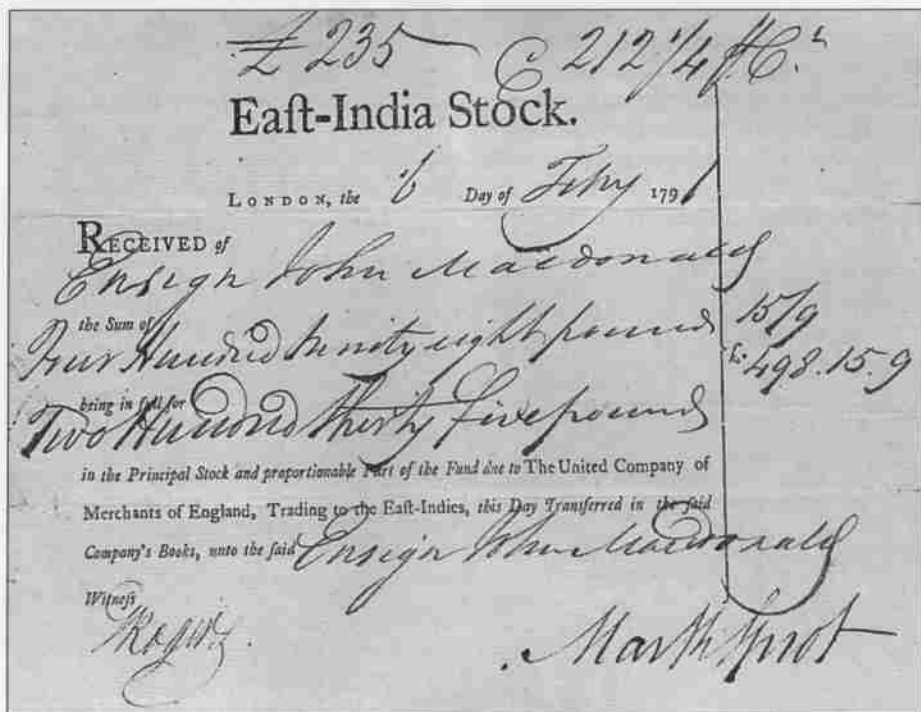 £ 235 @ 212 1/4 p. Ct
Eaſt-India Stock.
LONDON, the 6 Day of Feby 1791
RECEIVED of
Ensign John Macdonald
the Sum of
Four Hundred Ninety eight pounds 15/9
£. 498. 15. 9
being in full for
Two Hundred thirty five pounds
in the Principal Stock and proportionable Part of the Fund due to The United Company of
Merchants of England, Trading to the Eaſt-Indies, this Day Transferred in the ſaid
Company's Books, unto the ſaid Ensign John Macdonald
Witneſs
Mark Sprot